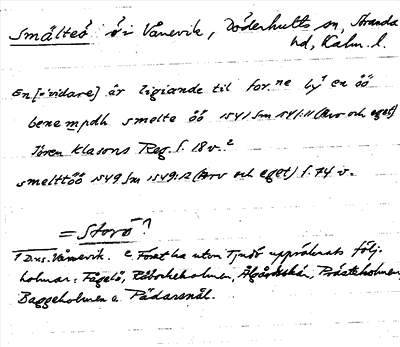 Smälteö ö i Vånevik, Döderhults sn, Stranda
hd, Kalm. l.
En [övidare] är ligiande til for.ne by¹ en öö
benempdh smelte öö 1541 Sm 1541:11 (Arv och eget)
Jören Klasons Reg. f. 18 v.²
smelttöö 1549 Sm 1549:12 (Arv och eget) f. 74 v.
= Storö?
¹ D.v.s. Vånevik. ² Förut ha utom Tjudö uppräknats följ.
holmar: Fågelö, Råborheholmen, Älgårdskär, Prästeholmen,
Baggeholmen o. Pädarsnäl.